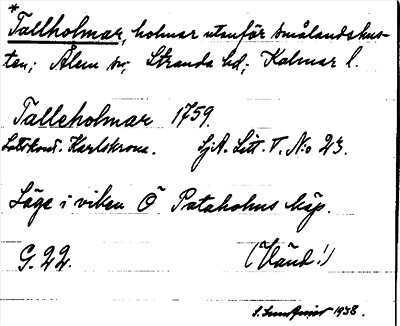 *
Tallholmar, holmar utanför Smålandskus-
ten; Ålem sn; Stranda hd; Kalmar l.
Talleholmar 1759.
Lotskont. Karlskrona. SjA. Litt. T. No 23.
Läge i viken Ö Pataholms köp.
G. 22. (Vänd!)
1938.